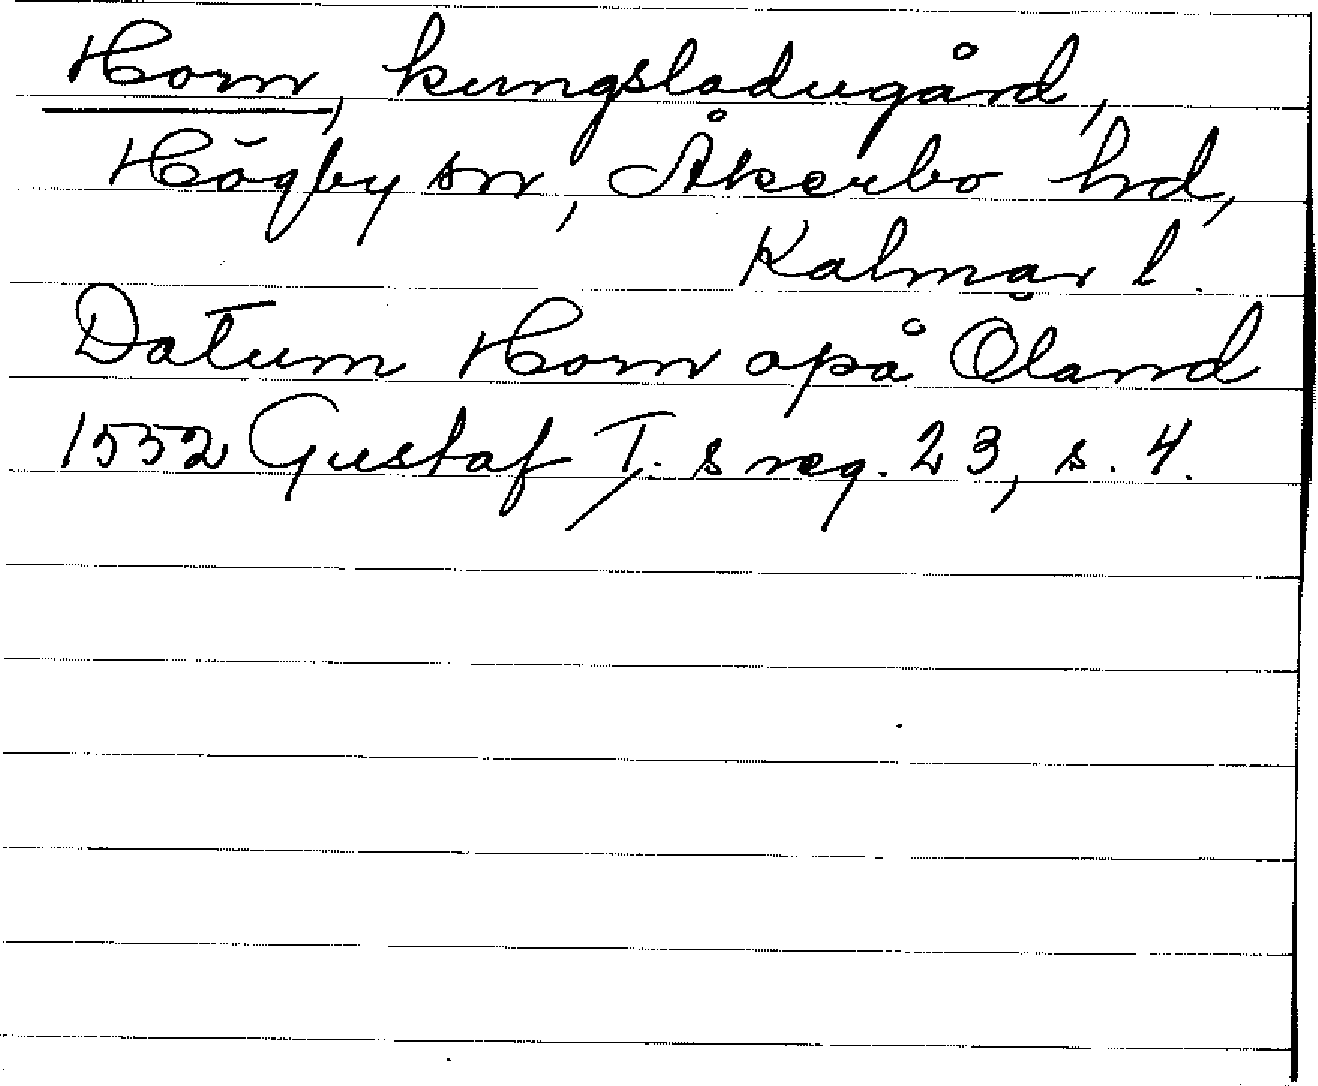 Horn, kungsladugård,
Högby sn, Åkerbo hd,
Kalmar l.
Datum Horn opå Öland
1552 Gustaf I:s reg. 23, s. 4.